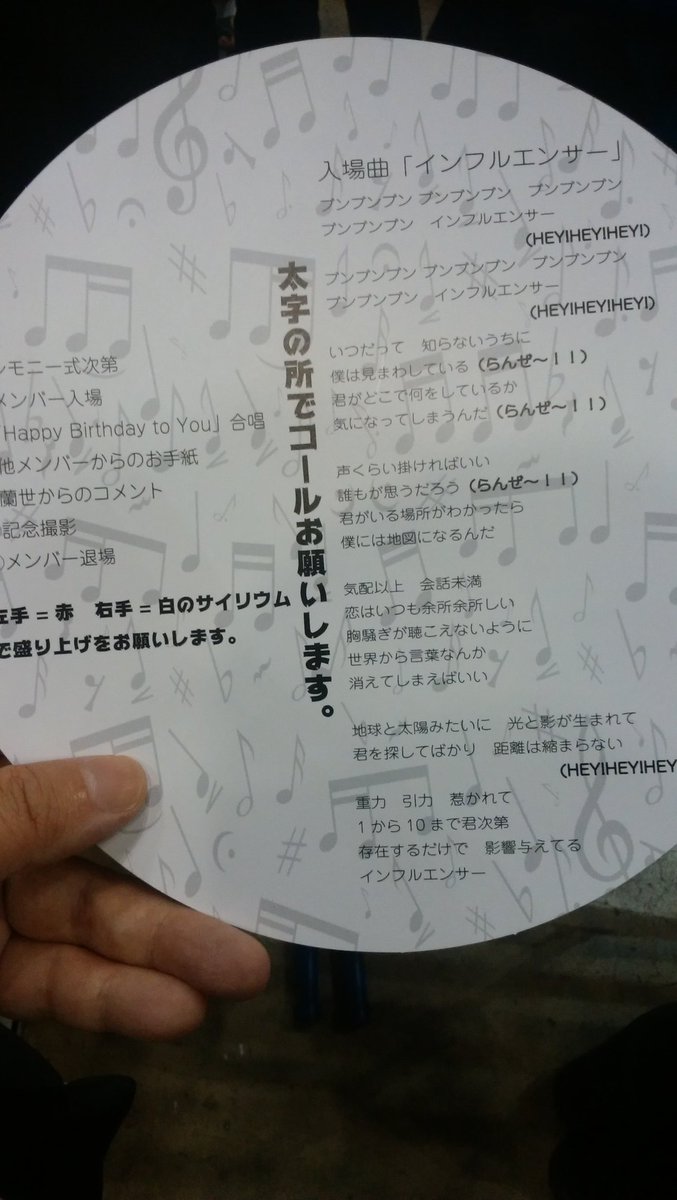 ンモニー式次第
メンバー入場
「Happy Birthday to You」合唱
他メンバーからのお手紙
蘭世からのコメント
記念撮影
メンバー退場
左手 = 赤　右手 = 白のサイリウム
で盛り上げをお願いします。
太字の所でコールお願いします。
入場曲「インフルエンサー」
ブンブンブン ブンブンブン　ブンブンブン
ブンブンブン　インフルエンサー
(HEY!HEY!HEY!)
ブンブンブン ブンブンブン　ブンブンブン
ブンブンブン　インフルエンサー
(HEY!HEY!HEY!)
いつだって　知らないうちに
僕は見まわしている（らんぜ～！！）
君がどこで何をしているか
気になってしまうんだ（らんぜ～！！）
声くらい掛ければいい
誰もが思うだろう（らんぜ～！！）
君がいる場所がわかったら
僕には地図になるんだ
気配以上　会話未満
恋はいつも余所余所しい
胸騒ぎが聴こえないように
世界から言葉なんか
消えてしまえばいい
地球と太陽みたいに　光と影が生まれて
君を探してばかり　距離は縮まらない
(HEY!HEY!HEY
重力　引力　惹かれて
1 から 10 まで君次第
存在するだけで　影響与えてる
インフルエンサー